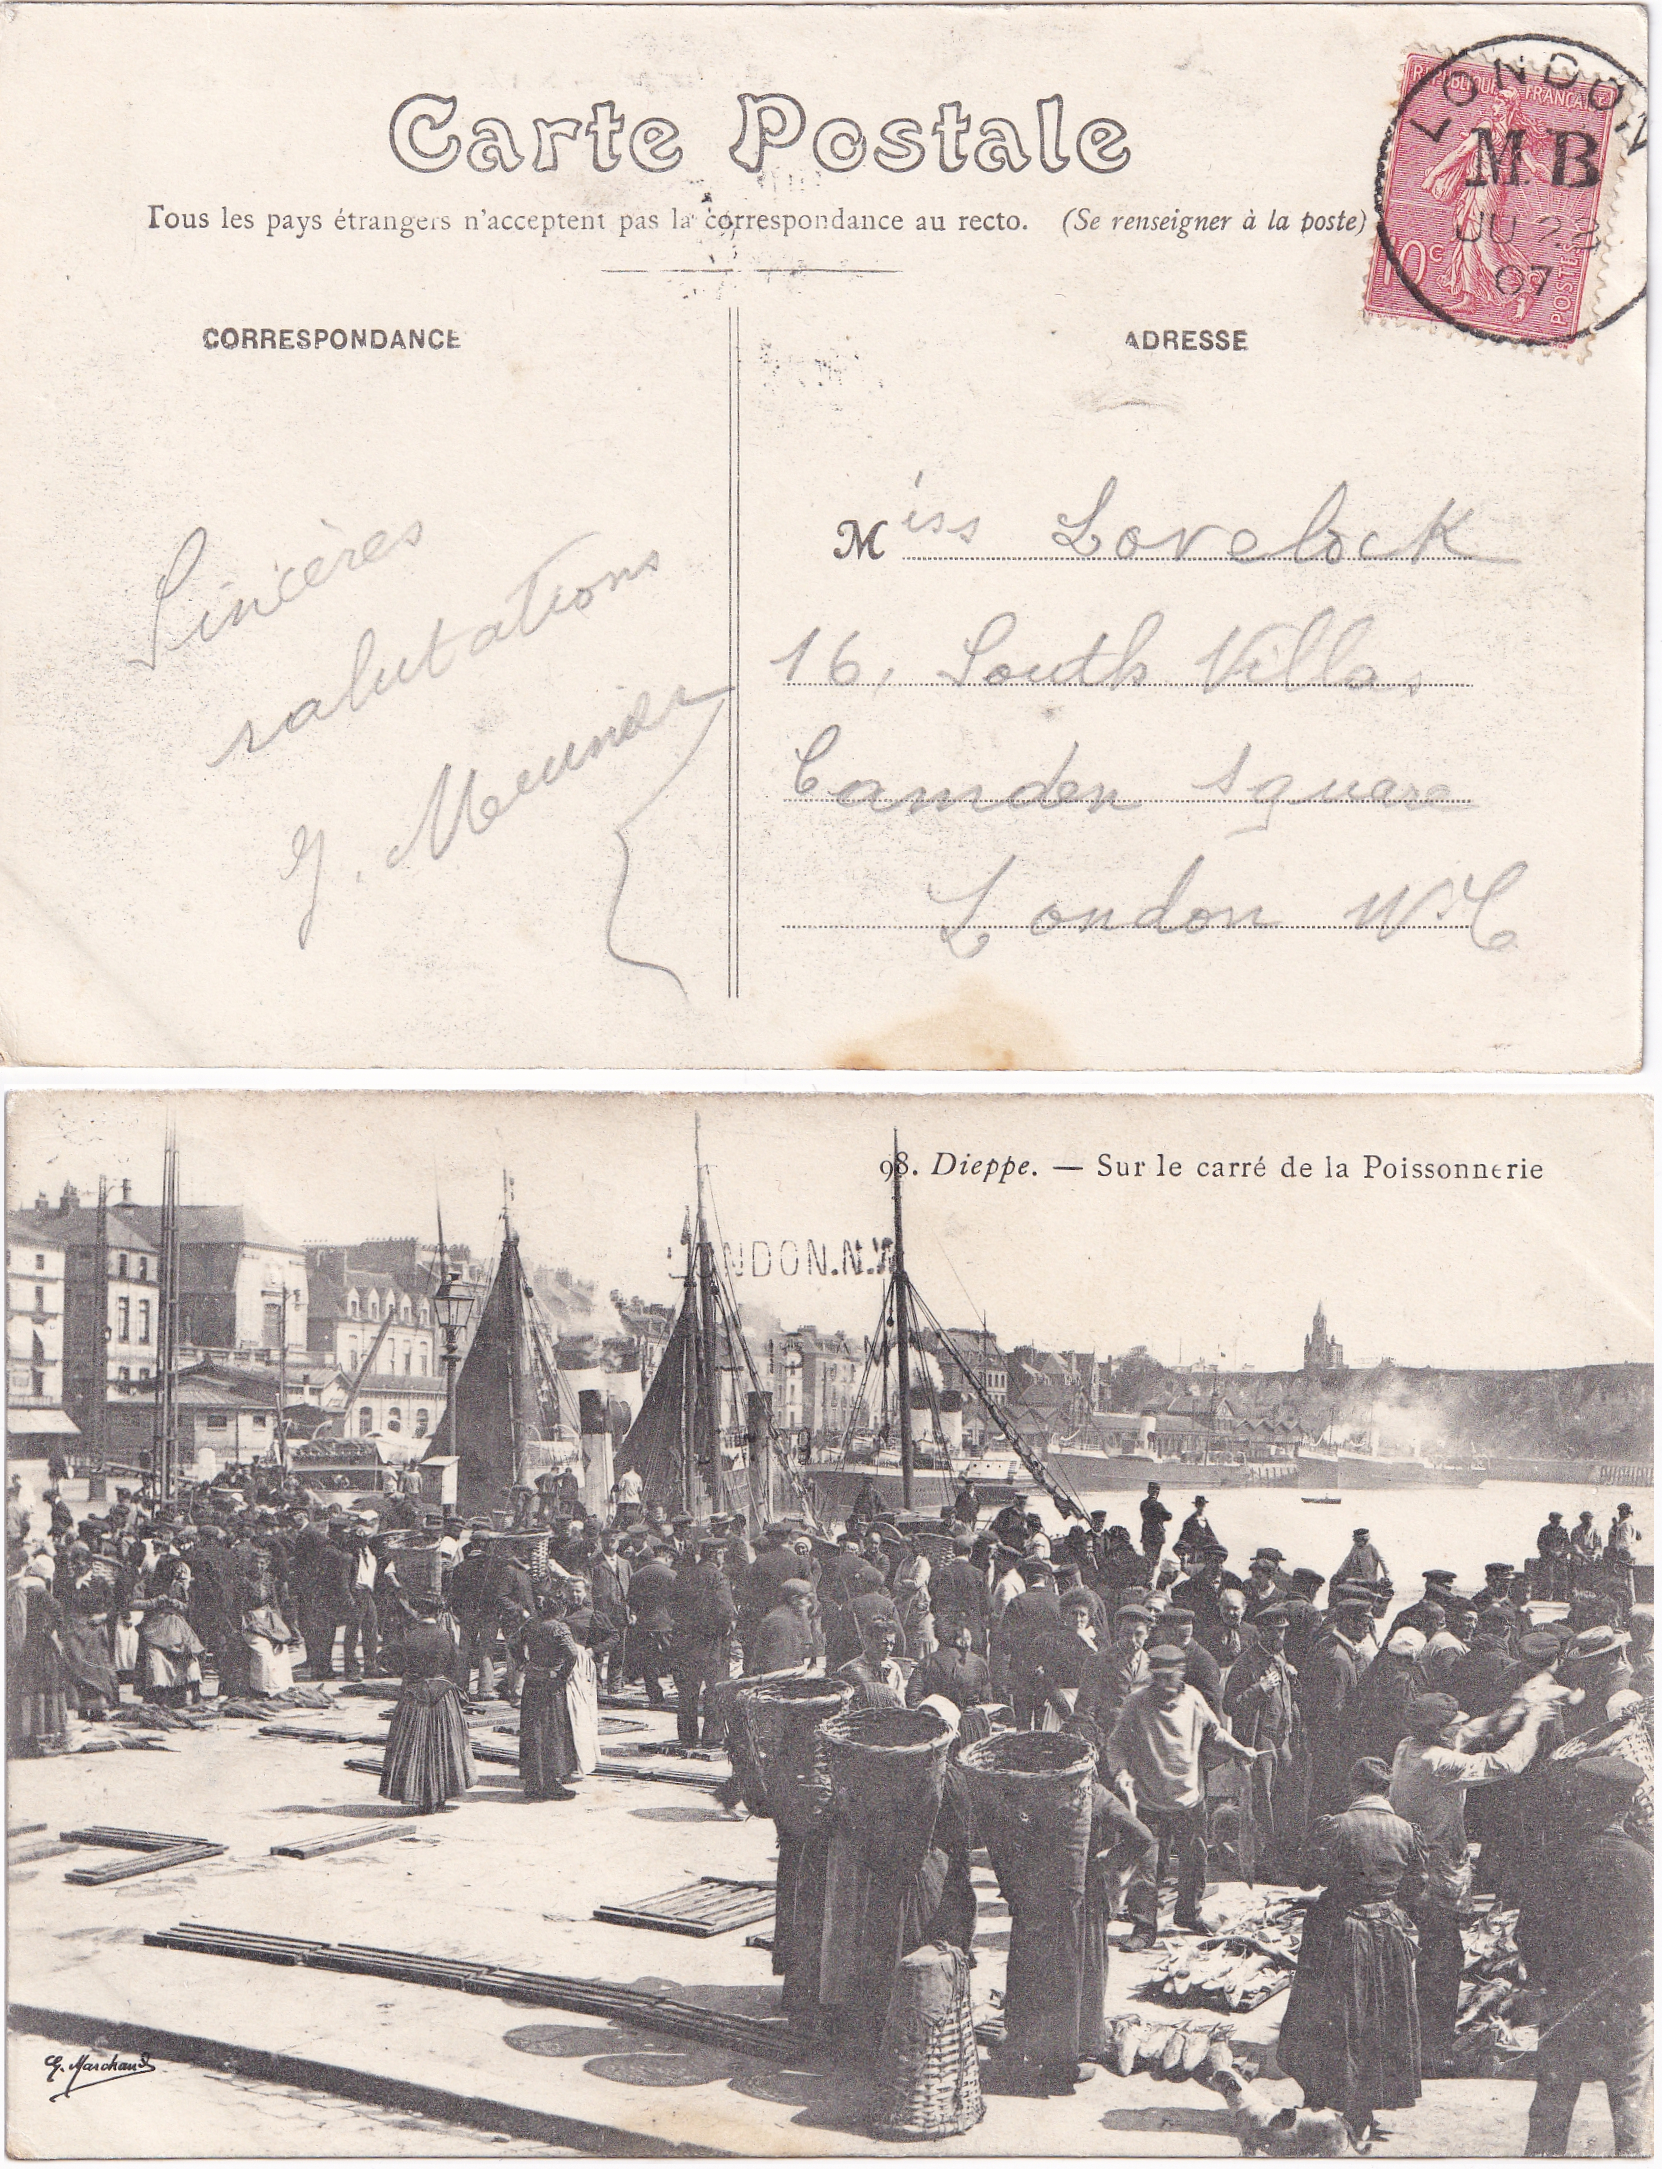 Carte Postale
Tous les pays étrangers n'acceptent pas la correspondance au recto. (Se renseigner à la poste)
RÉPUBLIQUE FRANÇAISE
10c
POSTES
LONDON
M.B
JU 22
07
CORRESPONDANCE
ADRESSE
Sincères
salutations
G. Meunier
Miss Lovelock
16, South Villas
Camden Square
London
98. Dieppe. — Sur le carré de la Poissonnerie
LONDON.N.W
G. Marchand